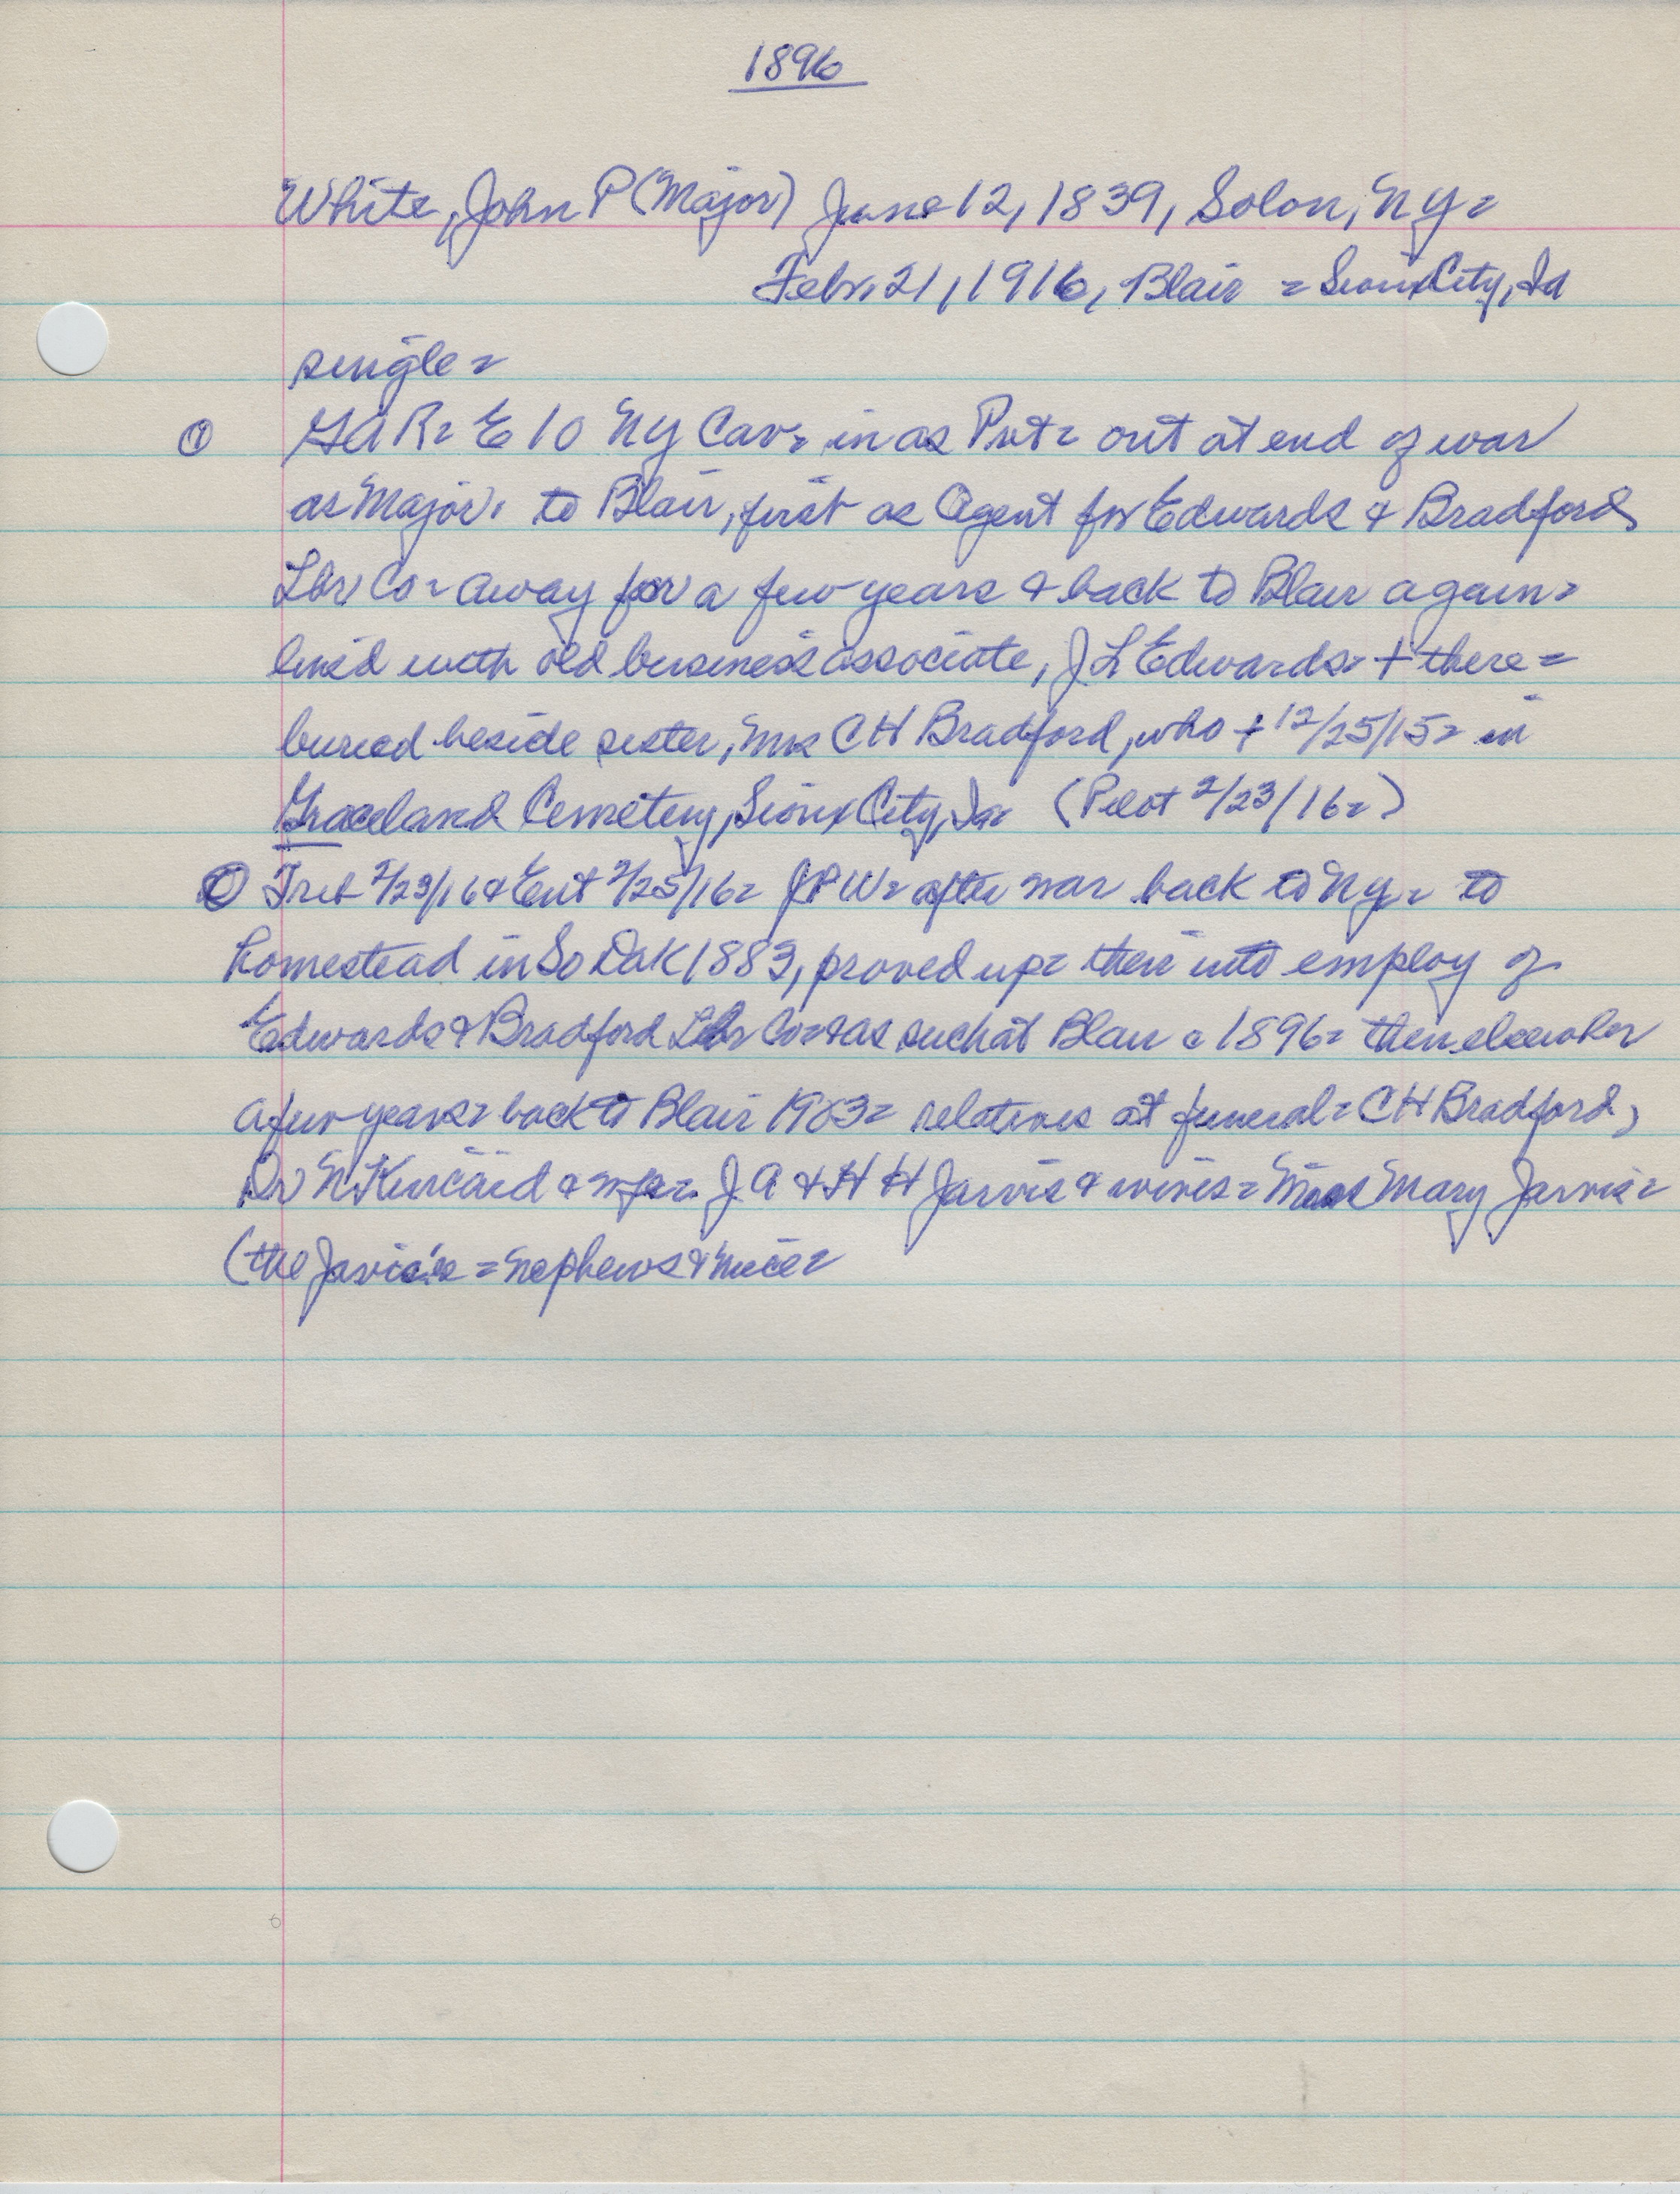 1896
White, John P (Major) June 12, 1839, Solon, NY =
Febr. 21, 1916, Blair = Sioux City, Ia
single =
① GAR = E 10 NY Cav = in as Pvt = out at end of war
as Major. to Blair, first as Agent for Edwards & Bradford
Lbr Co = away for a few years & back to Blair again =
lived with old business associate, J L Edwards = + there =
buried beside sister, Mrs C H Bradford, who + 12/25/15 = in
Graceland Cemetery, Sioux City, Ia = (Pilot 2/23/16 =)
Trib 2/23/16 & Ent 2/25/16 = J P W = after war back to NY = to
homestead in So Dak 1883, proved up = then into employ of
Edwards & Bradford Lbr Co = & as such at Blair c 1896 = then elsewher
a few years = back to Blair 1903 = relatives at funeral = C H Bradford,
Dr N Kincaid & wife = J. A & H H Jarvis & wives = Miss Mary Jarvis =
(the Javis's = Nephews & Niece =